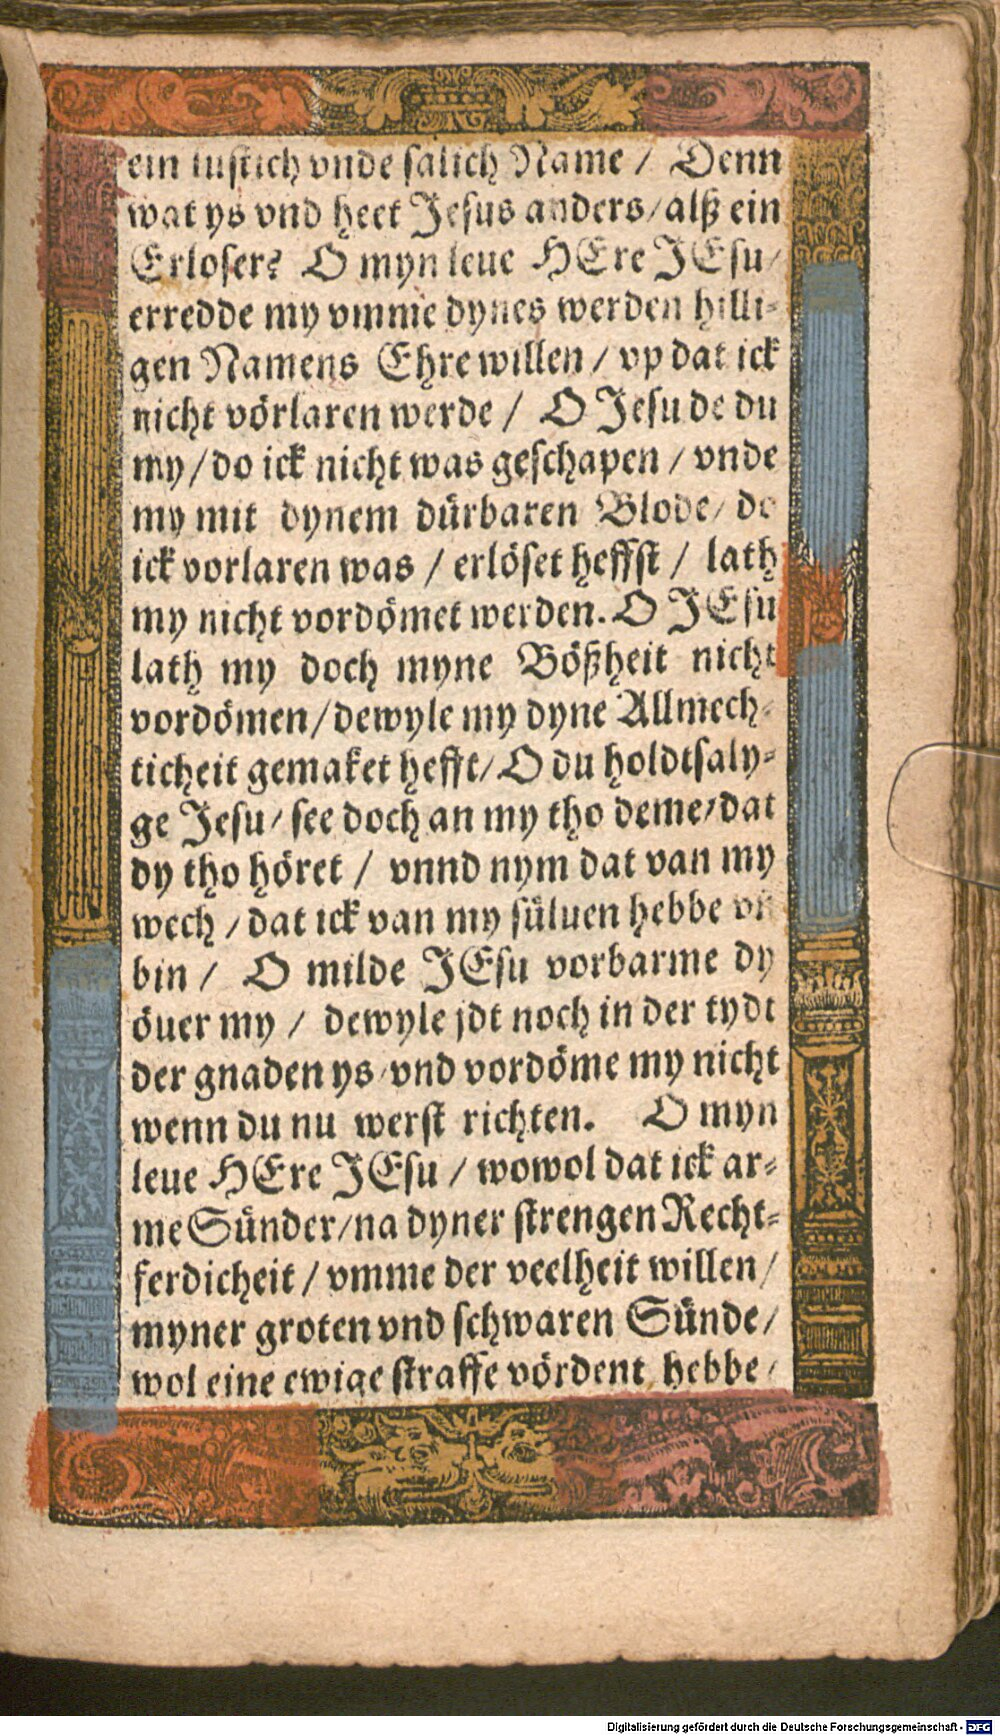 ein lustich vnde salich Name / Denn
wat ys vnd heet Jesus anders / alß ein
Erloser? O myn leue HEre JEsu /
erredde my vmme dynes werden hilli-
gen Namens Ehre willen / vp dat ick
nicht vörlaren werde / O Jesu de du
my / do ick nicht was geschapen / vnde
my mit dynem dürbaren Blode / do
ick vorlaren was / erlöset heffst / lath
my nicht vordömet werden. O JEsu
lath my doch myne Bößheit nicht
vordömen / dewyle my dyne Allmech-
ticheit gemaket hefft / O du holdtsaly-
ge Jesu / see doch an my tho deme / dat
dy tho höret / vnnd nym dat van my
wech / dat ick van my süluen hebbe vñ
bin / O milde JEsu vorbarme dy
öuer my / dewyle jdt noch in der tydt
der gnaden ys / vnd vordöme my nicht
wenn du nu werst richten. O myn
leue HEre JEsu / wowol dat ick ar-
me Sünder / na dyner strengen Recht-
ferdicheit / vmme der veelheit willen /
myner groten vnd schwaren Sünde /
wol eine ewige straffe vördent hebbe /
Digitalisierung gefördert durch die Deutsche Forschungsgemeinschaft - DFG